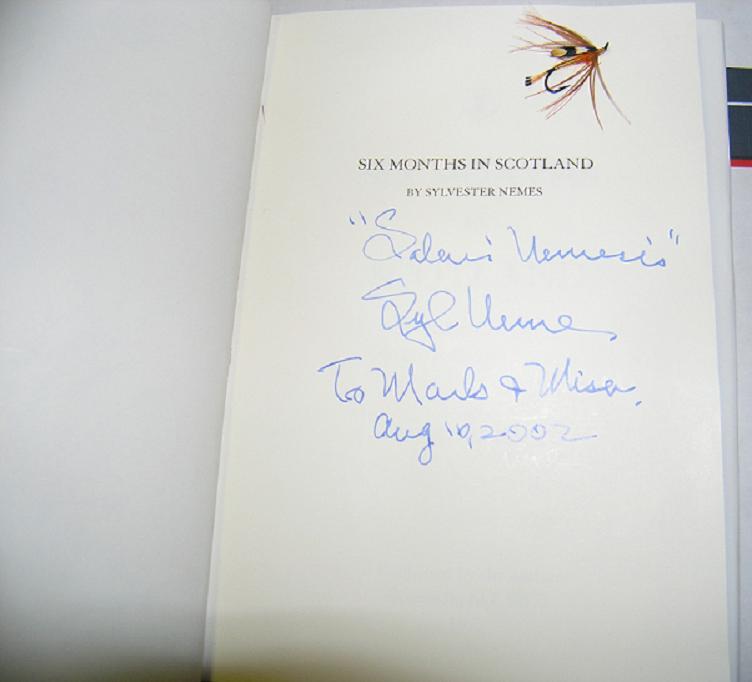 SIX MONTHS IN SCOTLAND
BY SYLVESTER NEMES
" Nemesis"
Syl Nemes
To & Misa
Aug 10, 2002